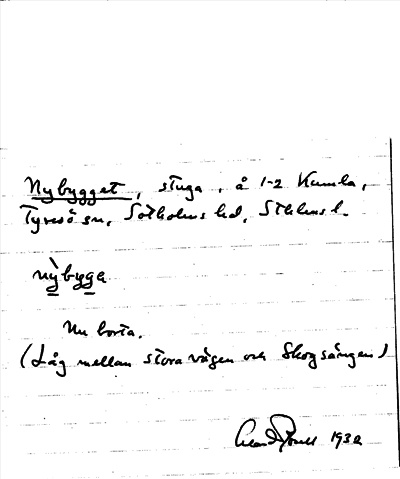 Nybygget, stuga, å 1-2 Kumla,
Tyresö sn, Sotholms hd, Sthlms l.
ny̍bygge
Nu borta.
(Låg mellan stora vägen och Skogsängen)
1932